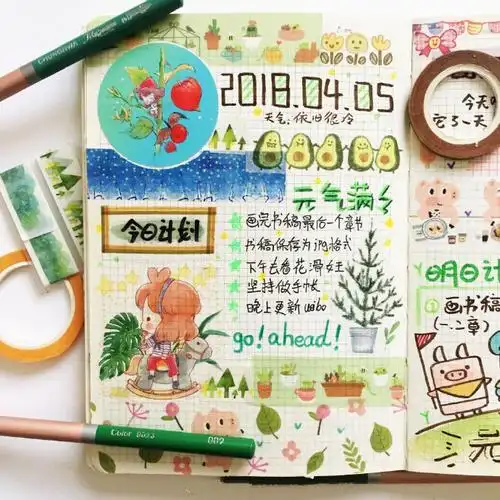 2018.04.05
天气:依旧很冷
元气满
今日计划
画完书稿最后一个章节
书稿保存为jpg格式
下午去看花滑女王
坚持做手帐
晚上更新weibo
go! ahead!
Color 8023
002
今天
明日计
①画书稿
(一.二章)
元